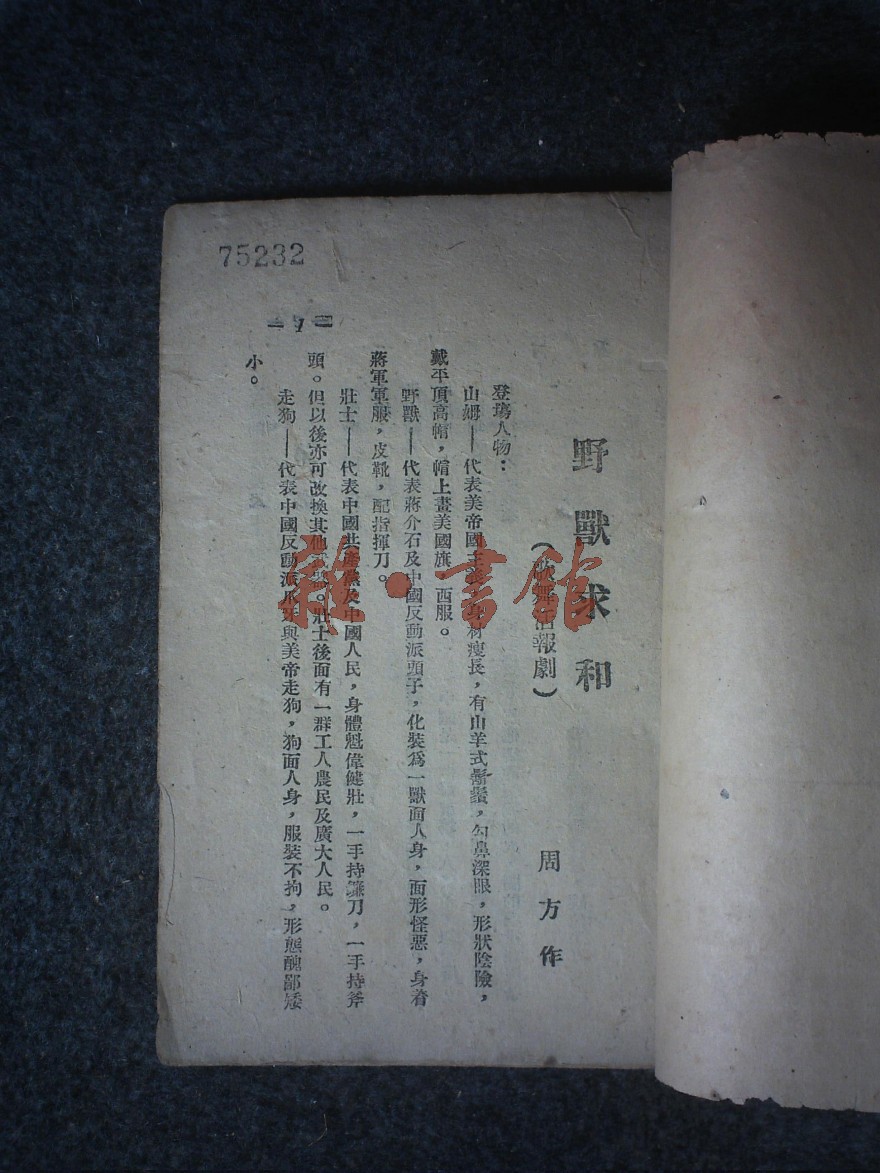 75232
野獸求和
(歌舞活報劇)
周方作
登場人物：
山姆——代表美帝國主義，身材瘦長，有山羊式鬍鬚，勾鼻深眼，形狀陰險，
戴平頂高帽，帽上畫美國旗，西服。
野獸——代表蔣介石及中國反動派頭子，化裝爲一獸面人身，面形怪惡，身着
蔣軍軍服，皮靴，配指揮刀。
壯士——代表中國共產黨及中國人民，身體魁偉健壯，一手持鐮刀，一手持斧
頭。但以後亦可改換其他武器。壯士後面有一群工人農民及廣大人民。
走狗——代表中國反動派爪牙與美帝走狗，狗面人身，服裝不拘，形態醜鄙矮
小。
雜·書館